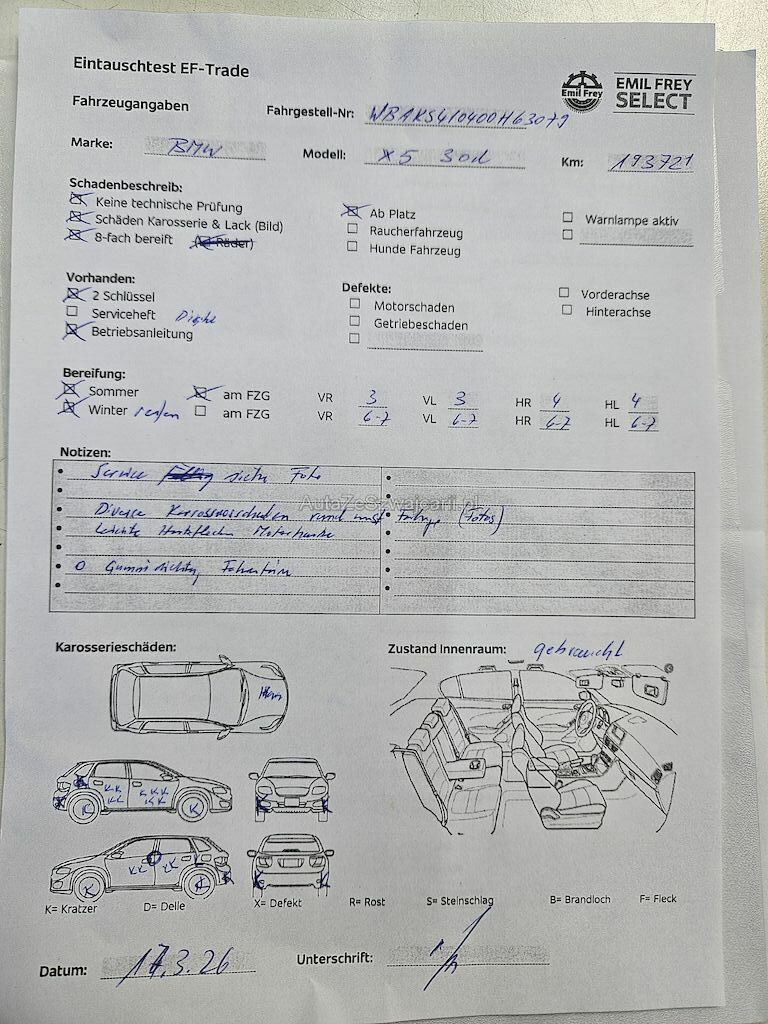 Eintauschtest EF-Trade
Emil Frey
EMIL FREY
SELECT
Fahrzeugangaben
Fahrgestell-Nr:
Marke: BMW
Modell: X5 30d
Km: 193721
Schadenbeschreib:
Keine technische Prüfung
Schäden Karosserie & Lack (Bild)
8-fach bereift
Ab Platz
Raucherfahrzeug
Hunde Fahrzeug
Warnlampe aktiv
Vorhanden:
2 Schlüssel
Serviceheft
Betriebsanleitung
Defekte:
Motorschaden
Getriebeschaden
Vorderachse
Hinterachse
Bereifung:
Sommer am FZG VR 3 VL 3 HR 4 HL 4
Winter am FZG VR 6-7 VL 6-7 HR 6-7 HL 6-7
Notizen:
Service Foto
AutaZeSzwajcarii.pl
Diverse rund (Fotos)
Karosserieschäden:
Zustand Innenraum: gebraucht
K K
K K K
K K
K K
K K
K K K K
K K
K K
K K
K= Kratzer D= Delle X= Defekt R= Rost S= Steinschlag B= Brandloch F= Fleck
Datum: 17.3.26
Unterschrift: